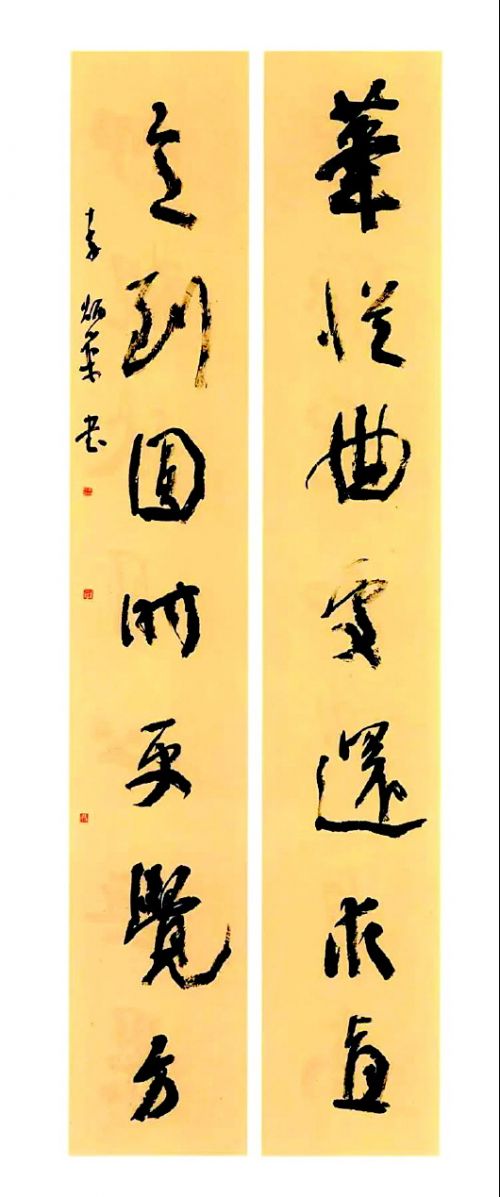 筆從曲處還求直
意到圓時更覺方
李炳 書